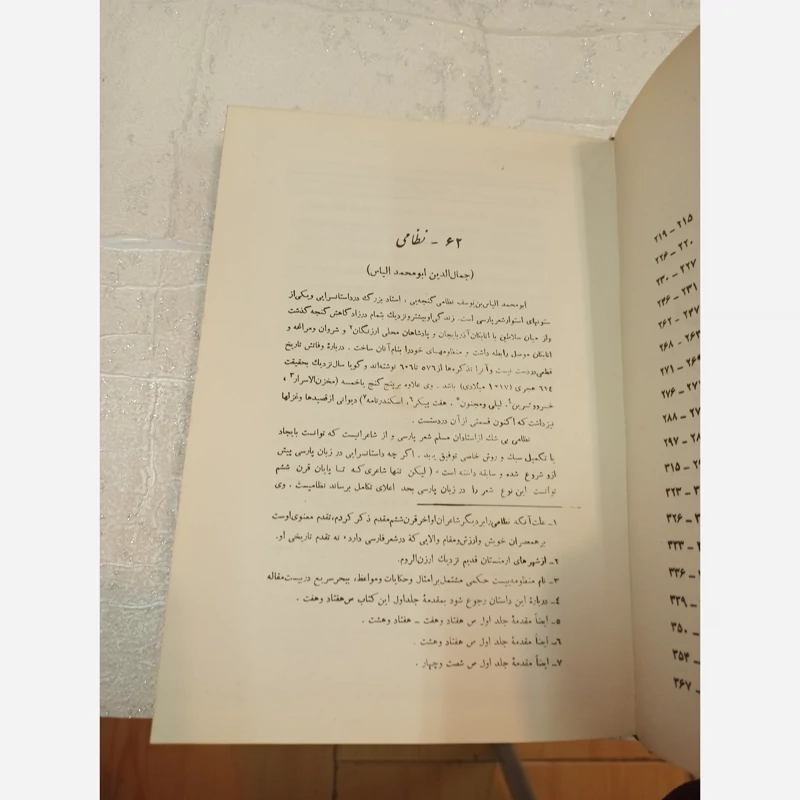 ۶۲ ـ نظامی
(جمال‌الدین ابومحمد الیاس)
ابومحمد الیاس‌بن‌یوسف نظامی گنجه‌یی، استاد بزرگ درداستانسرایی ویکی از
ستونهای استوارشعرپارسی است. زندگی او بیشترونزدیك بتمام درزادگاهش گنجه گذشت
واز میان سلاطین با اتابکان آذربایجان و پادشاهان محلی ارزنگان۲ و شروان ومراغه و
اتابکان موصل رابطه داشت و منظومه‌های خودرا بنام آنان ساخت . دربارهٔ وفاتش تاریخ
قطعی دردست نیست وآنرا تذکره‌ها از۵۷۶ تا۶۰۶ نوشته‌اند و گویا سال نزدیك بحقیقت
۶۱۴ هجری (۱۲۱۷ میلادی) باشد . وی علاوه برپنج گنج یاخمسه (مخزن‌الاسرار۳ ،
خسرووشیرین۴، لیلی ومجنون۵، هفت پیکر۶، اسکندرنامه۷) دیوانی ازقصیدها وغزلها
نیزداشت که اکنون قسمتی از آن دردستست .
نظامی بی شك ازاستادان مسلم شعر پارسی و از شاعرانیست که توانست بایجاد
یا تکمیل سبك و روش خاصی توفیق یابد . اگر چه داستانسرایی در زبان پارسی پیش
ازو شروع شده و سابقه داشته است ، لیکن تنها شاعری‌که تا پایان قرن ششم
توانست این نوع شعر را در زبان پارسی بحد اعلای تکامل برساند نظامیست . وی
۱ـ علت آنکه نظامی رابردیگرشاعران اواخرقرن‌ششم‌مقدم ذکر کردم، تقدم معنوی‌اوست
برهمعصران خویش وارزش‌ومقام والایی‌که درشعرفارسی دارد، نه تقدم تاریخی او.
۲ـ ازشهرهای ارمنستان قدیم نزدیك ارزن‌الروم.
۳ـ نام منظومه‌ییست حکمی مشتمل‌برامثال وحکایات ومواعظ، ببحرسریع دربیست‌مقاله
۴ـ دربارهٔ این داستان رجوع شود بمقدمهٔ جلداول این کتاب ص هفتاد وهفت .
۵ـ ایضاً مقدمهٔ جلد اول ص هفتاد وهفت ـ هفتاد وهشت .
۶ـ ایضاً مقدمهٔ جلد اول ص هفتاد وهشت .
۷ـ ایضاً مقدمهٔ جلد اول ص شصت وچهار .
۲۱۵ ـ ۲۱۹
۲۲۰ ـ ۲۲۶
۲۲۷ ـ ۲۳۰
۲۳۱ ـ ۲۳۶
۲۳۷ ـ ۲۶۲
ـ ۲۶۸
ـ ۲۷۱
ـ ۲۷۶
ـ ۲۸۸
ـ ۲۹۷
ـ ۳۱۵
ـ ۳۲۳
ـ ۳۲۶
ـ ۳۳۳
ـ ۳۳۶
ـ ۳۳۹
ـ ۳۵۰
ـ ۳۵۴
ـ ۳۶۷